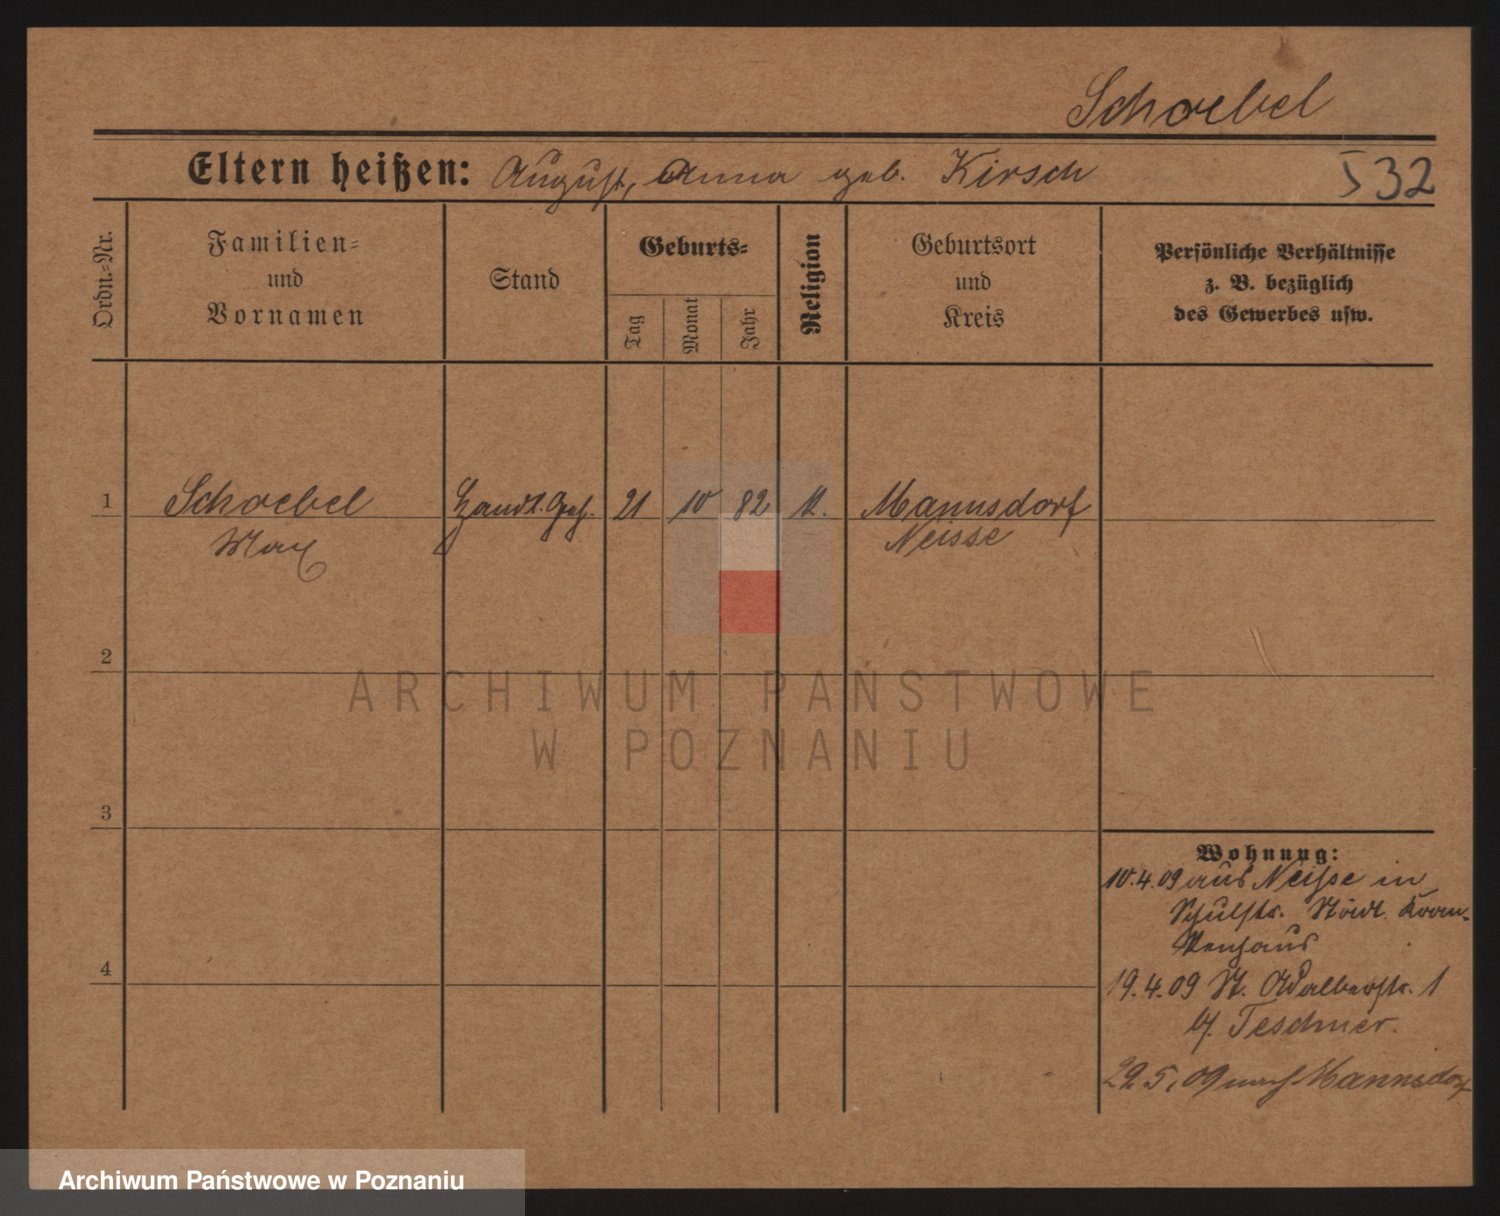 Schoebel
Eltern heißen: August, Anna geb. Kirsch 532
Ordn.-Nr.
Familien-
und
Vornamen
Stand
Geburts-
Tag
Monat
Jahr
Religion
Geburtsort
und
Kreis
Persönliche Verhältnisse
z. B. bezüglich
des Gewerbes usw.
1 Schoebel Handl. Geh. 21 10 82 K. Mannsdorf
Max Neisse
2
3
4
Wohnung:
10.4.09 aus Neisse in
Schulstr. Städt. Kran-
kenhaus
19.4.09 St. Adalbertstr. 1
b/. Teschner.
22.5.09 nach Mannsdorf
ARCHIWUM PAŃSTWOWE
W POZNANIU
Archiwum Państwowe w Poznaniu